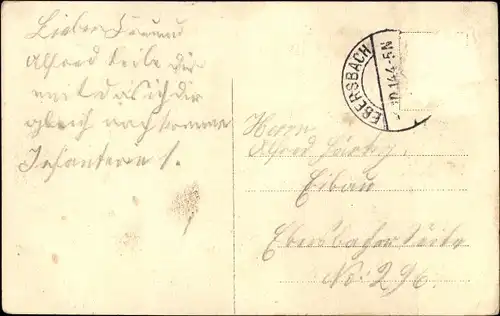 Lieber Freund
Alfred teile dir
mit das ich dir
gleich nach komme
Infanterie 1.
EBERSBACH
10.1.14.4-5N
Herrn
Alfred
Eibau
Ebersbacher Seite
No: 296.